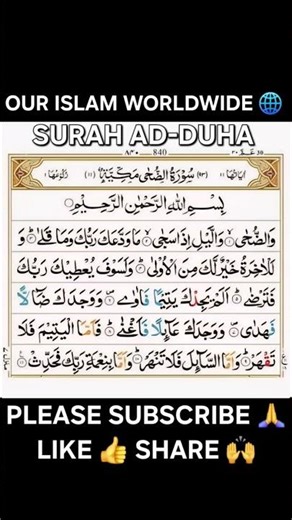 OUR ISLAM WORLDWIDE 🌐
SURAH AD-DUHA
٨٤٠ 840
اٰیَاتُهَا ١١ (٩٣) سُوْرَةُ الضُّحٰى مَكِّيَّةٌ (١١) رُكُوْعُهَا ١
بِسْمِ اللّٰهِ الرَّحْمٰنِ الرَّحِيْمِ
وَالضُّحٰى ۙ وَالَّيْلِ اِذَا سَجٰى ۙ مَا وَدَّعَكَ رَبُّكَ وَمَا قَلٰى ۗ وَ
لَلْاٰخِرَةُ خَيْرٌ لَّكَ مِنَ الْاُوْلٰى ۗ وَلَسَوْفَ يُعْطِيْكَ رَبُّكَ
فَتَرْضٰى ۗ اَلَمْ يَجِدْكَ يَتِيْمًا فَاٰوٰى ۪ وَوَجَدَكَ ضَآلًّا
فَهَدٰى ۪ وَوَجَدَكَ عَآئِلًا فَاَغْنٰى ۗ فَاَمَّا الْيَتِيْمَ فَلَا
تَقْهَرْ ۗ وَاَمَّا السَّآئِلَ فَلَا تَنْهَرْ ۗ وَاَمَّا بِنِعْمَةِ رَبِّكَ فَحَدِّثْ
PLEASE SUBSCRIBE 🙏
LIKE 👍 SHARE 🙌